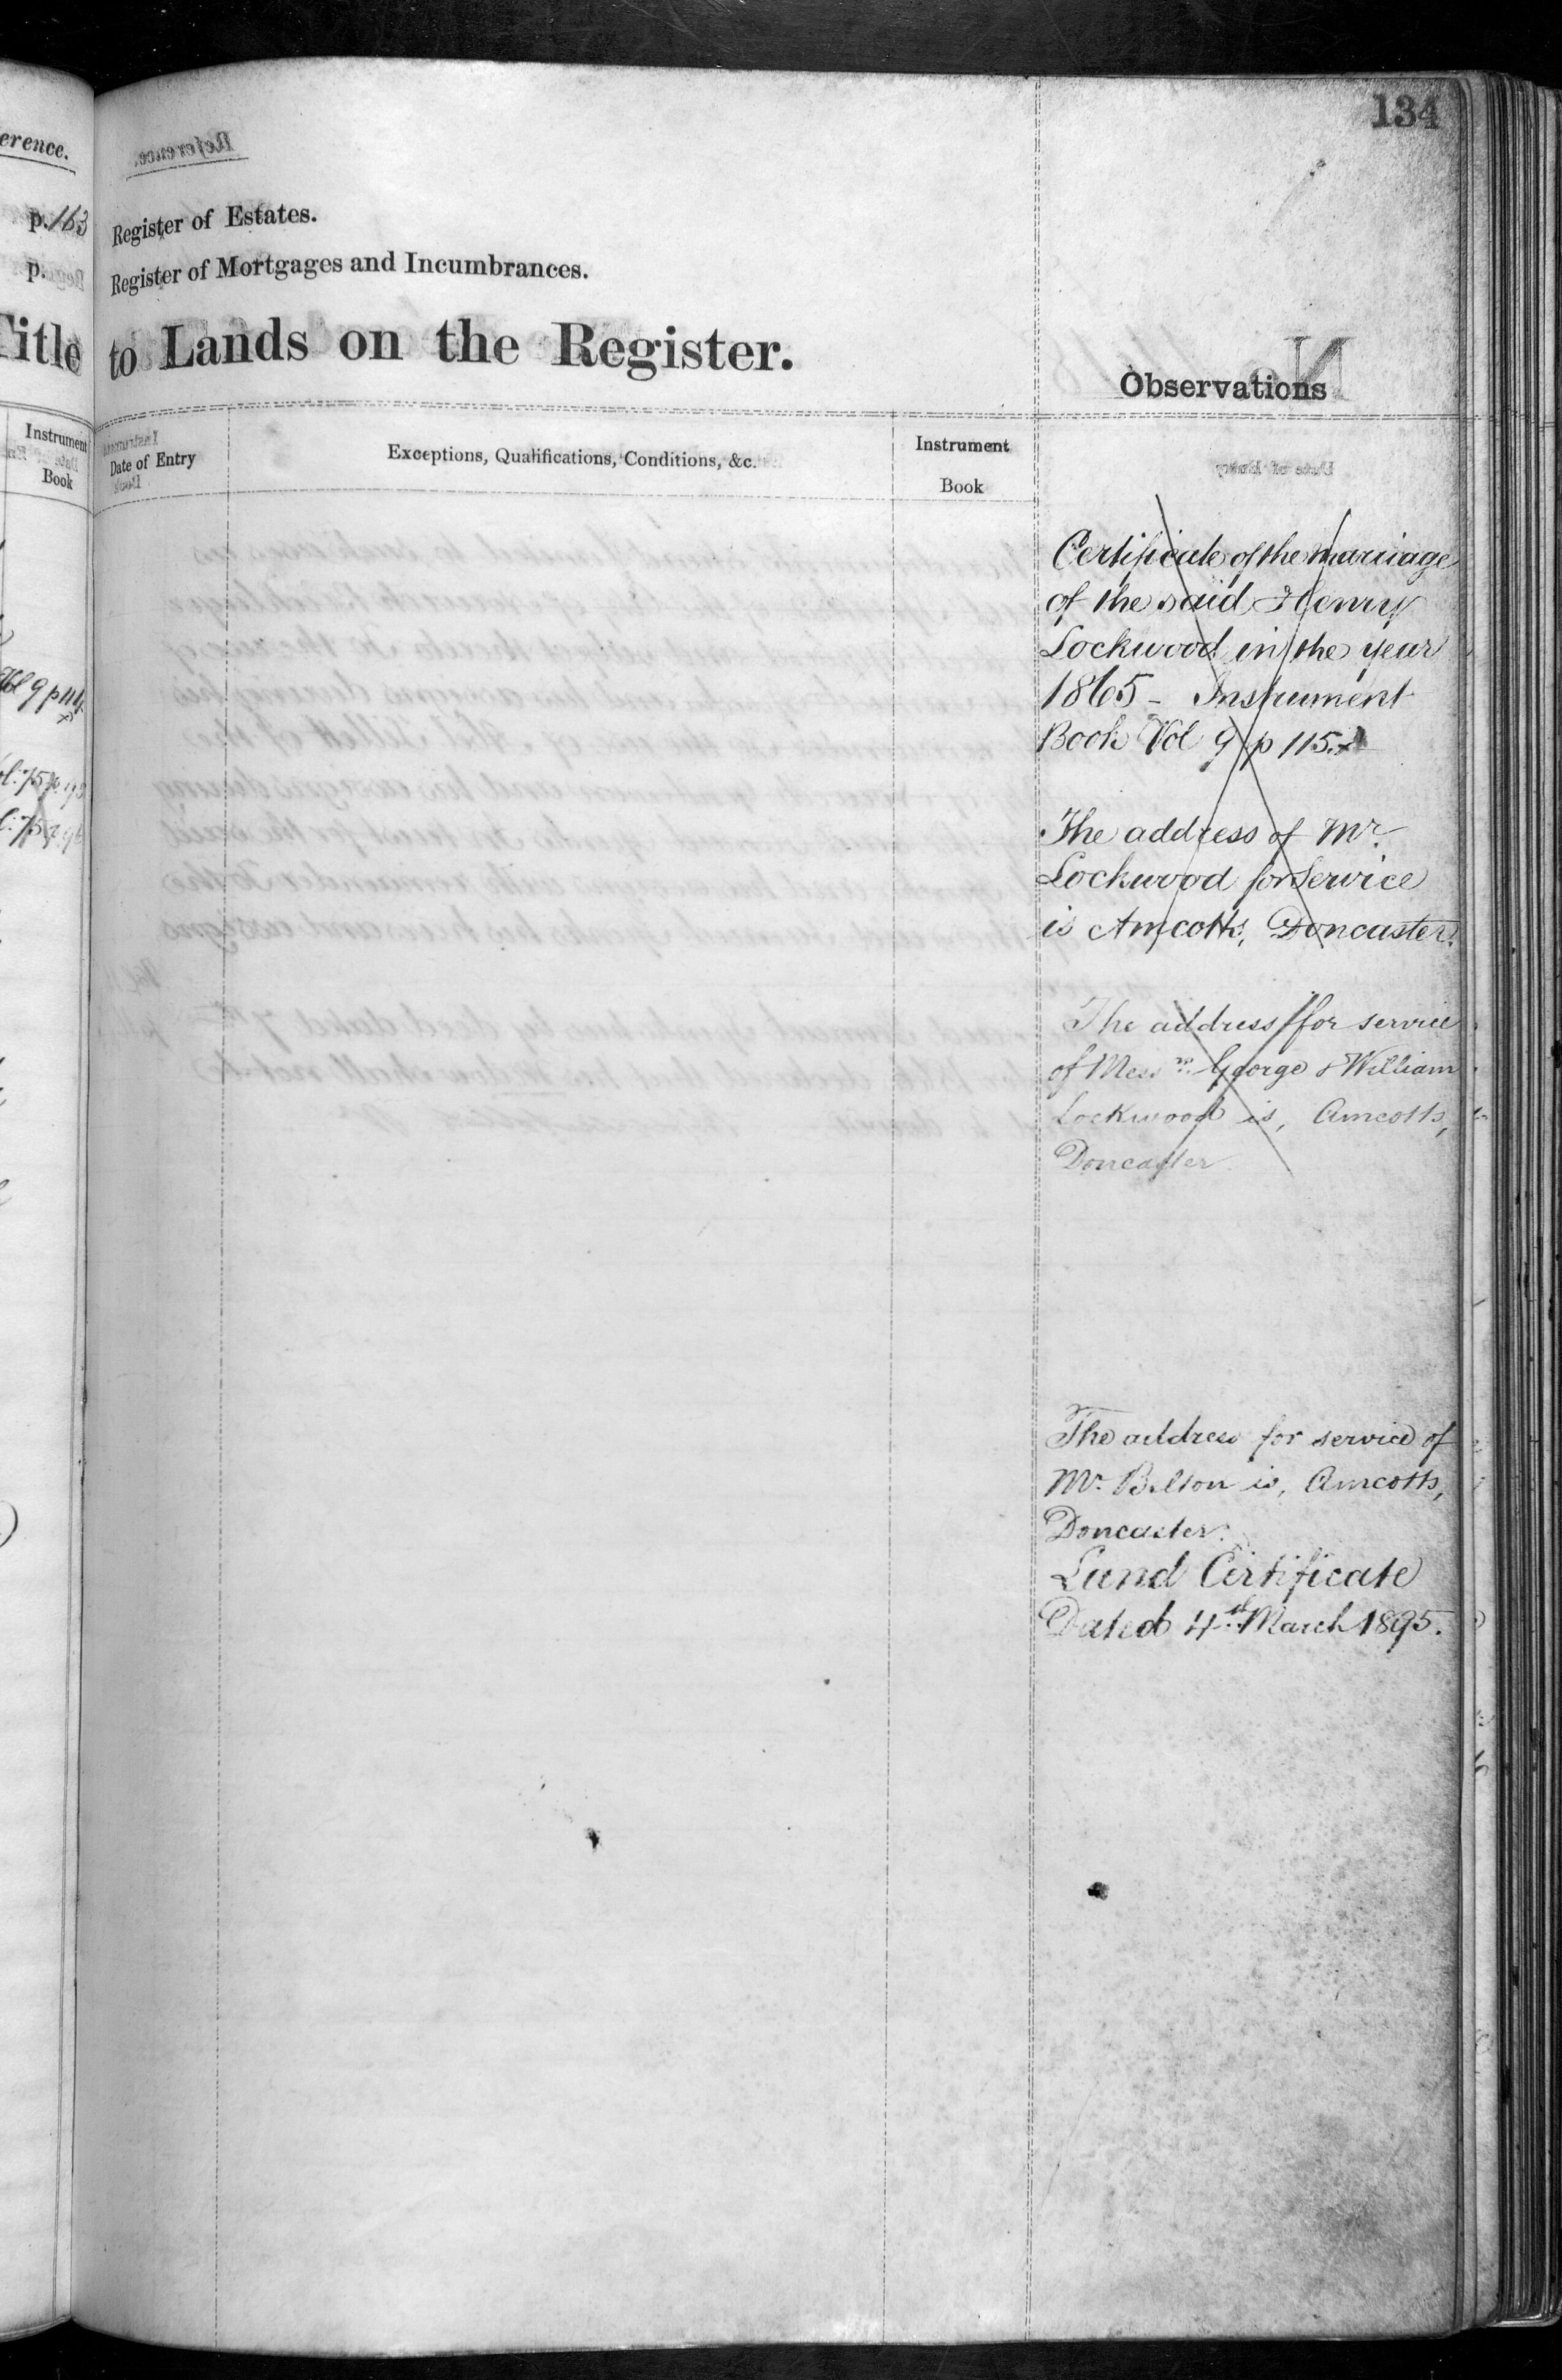 134
erence.
p. 163
p.
Register of Estates.
Register of Mortgages and Incumbrances.
Title to Lands on the Register.
Observations
Instrument
Book
Date of Entry
Exceptions, Qualifications, Conditions, &c.
Instrument
Book
Certificate of the marriage
of the said Henry
Lockwood in the year
1865 - Instrument
Book Vol 9 p 115.
The address of Mr.
Lockwood for Service
is Amcotts, Doncaster.
The address for service
of Messrs. George & William
Lockwood is, Amcotts,
Doncaster
The address for service of
Mr. Belton is, Amcotts,
Doncaster.
Land Certificate
Dated 4th March 1895.